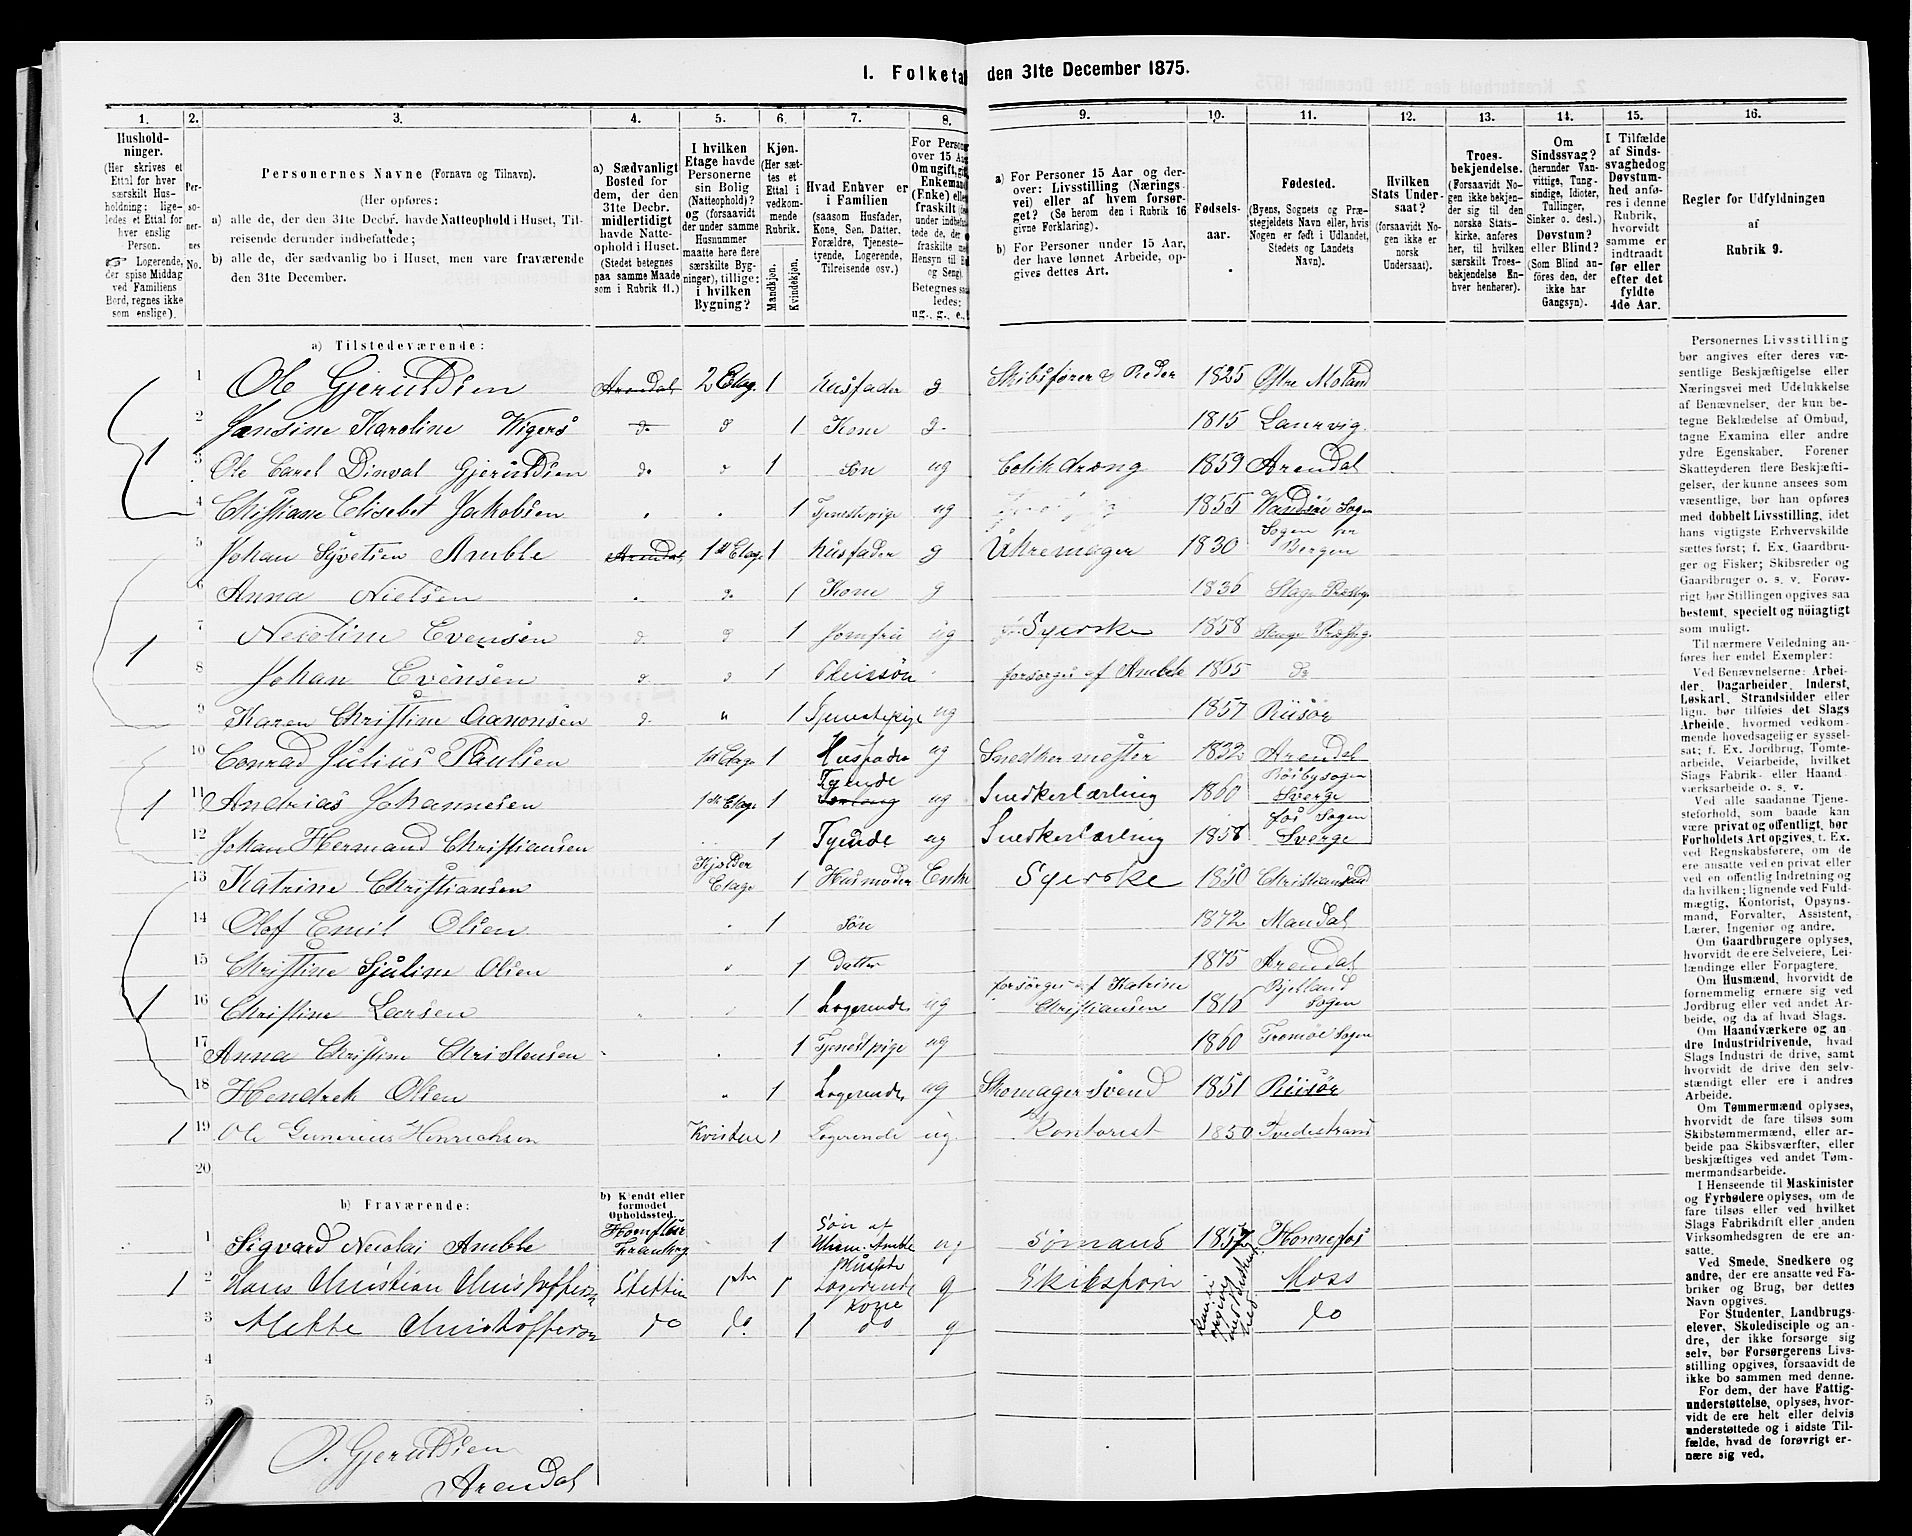 I. Folketæ den 31te December 1875.
1. 2. 3. 4. 5. 6. 7. 8. 9. 10. 11. 12. 13. 14. 15. 16.
Hushold-
ninger.
(Her skrives et
Ettal for hver
særskilt Hus-
holdning: lige-
ledes et Ettal for
hver enslig
Person.
☞ Logerende,
der spise Middag
ved Familiens
Bord, regnes ikke
som enslige).
Per-
so-
ner-
nes
No.
Personernes Navne (Fornavn og Tilnavn).
(Her opføres:
a) alle de, der den 31te Decbr. havde Natteophold i Huset, Til-
reisende derunder indbefattede;
b) alle de, der sædvanlig bo i Huset, men vare fraværende
den 31te December.
a) Sædvanligt
Bosted for
dem, der den
31te Decbr.
midlertidigt
havde Natte-
ophold i Huset.
(Stedet betegnes
paa samme Maade
som i Rubrik 11.)
I hvilken
Etage havde
Personerne
sin Bolig
(Natteophold)?
og (forsaavidt
der under samme
Husnummer
maatte høre flere
særskilte Byg-
ninger), tillige:
i hvilken
Bygning?
Kjøn.
(Her sæt-
tes et
Ettal i
vedkom-
mende
Rubrik.
Mandkjøn.
Kvindekjøn.
Hvad Enhver er
i Familien
(saasom Husfader,
Kone, Søn, Datter,
Forældre, Tjeneste-
tyende, Logerende,
Tilreisende osv.)
For Person
over 15 Aa
Om ugift, gif
Enkemand
(Enke) ell
fraskilt (e
tede de, de
fraskilte m
Hensyn til B
og Seng).
Betegnes saa
ledes:
ug., g., e.,
a) For Personer 15 Aar og der-
over: Livsstilling (Nærings-
vei) eller af hvem forsør-
get? (Se herom den i Rubrik 16
givne Forklaring).
b) For Personer under 15 Aar,
der have lønnet Arbeide, op-
gives dettes Art.
Fødsels-
aar.
Fødested.
(Byens, Sognets og Præ-
stegjeldets Navn eller, hvis
Nogen er født i Udlandet,
Stedets og Landets
Navn).
Hvilken
Stats Under-
saat?
(forsaavidt No-
gen ikke er
norsk
Undersaat).
Troes-
bekjendelse.
(Forsaavidt No-
gen ikke bekjen-
der sig til den
norske Stats-
kirke, anføres
her, til hvilken
særskilt Troes-
bekjendelse En-
hver henhører).
Om
Sindssvag?
(herunder Van-
vittige, Tung-
sindige, Idioter,
Tullinger,
Sinker o. desl.)
Døvstum?
eller Blind?
(Som Blind an-
føres den, der
ikke har
Gangsyn).
I Tilfælde
af Sinds-
svaghed og
Døvstum-
hed anfø-
res i denne
Rubrik,
hvorvidt
samme er
indtraadt
før eller
efter det
fyldte
4de Aar.
Regler for Udfyldningen
af
Rubrik 9.
a) Tilstedeværende:
1 Ole Gjeruldsen Arendal 2 Etag. 1 Husfader g Skibsfører & Reder 1825 Østre Moland
2 Jensine Karoline Wigers do d 1 Kone g. 1815 Laurvig.
1 3 Ole Carel Dinval Gjeruldsen do 1 Søn ug 1859 Arendal
4 Christiane Elisebet Jakobsen 1 Tjenestepige ug 1855 Sogn
5 Johan Syvetsen Amble Arendal 1st Etag. 1 Husfader g Uhremager 1830 Sogen pr Bergen
6 Anna Nielsen 1 Kone g 1836
1 7 Nicoline Evensen d. 1 Jomfru ug Syerske 1858
8 Johan Evensen 1 Pleiesøn forsorges af Amble 1865 do
9 Karen Christine Aanonsen d. 1 Tjenestepige ug 1857 Riisør
10 Conrad Julius Paulsen 1st Etage 1 Husfader ug Snedkermester 1832 Arendal
1 11 Andrias Johannesen 1st Etage 1 Tyende ug Snedkerlærling 1860 Sverge
12 Johan Hermand Christiansen 1 Tyende ug Snedkerlærling 1858 fos Sogen Sverge
13 Katrine Christiansen Kjelder Etage 1 Husmoder Enke Syerske 1850 Christiansand
14 Olaf Emil Olsen 1 Søn 1872 Mandal
15 Christine Sjuline Olsen 1 Datter 1875 Arendal
1 16 Christine Larsen 1 Logerende ug forsørges af Katrine Christiansen 1816 Bjelland Sogen
17 Anna Christine Christensen 1 Tjenestpige ug 1860 Tromøe Sogen
18 Hendrek Olsen 1 Logerende ug Skomagersvend 1851 Riisør
1 19 Ole Gunerius Henrichsen Kvisten 1 Logerende ug. Kontorist 1850 Tvedestrand
20
b) Fraværende:
b) Kjendt eller
formodet
Opholdssted.
1 Sigvard Nicolai Amble Honfleur Frankrig 1 Søn af Uhrm. Amble ug Sømand 1857 Hønnefos
1 2 Hans Christian Christoffersen Stettin 1ste 1 Logerende g Skibsfører Moss
3 Mekte Christoffersen do do 1 Kone do g do
4
5
O. Gjeruldsen
Arendal
Personernes Livsstilling
bør angives efter deres væ-
sentlige Beskjæftigelse eller
Næringsvei med Udelukkelse
af Benævnelser, der kun be-
tegne Beklædelse af Ombud,
tagne Examina eller andre
ydre Egenskaber. Forener
Skatteyderen flere Beskjæfti-
gelser, der kunne ansees som
væsentlige, bør han opføres
med dobbelt Livsstilling, idet
hans vigtigste Erhvervskilde
sættes først; f. Ex. Gaardbru-
ger og Fisker; Skibsreder og
Gaardbruger o. s. v. Forøv-
rigt bør Stillingen opgives saa
bestemt, specielt og nøiagtigt
som muligt.
Til nærmere Veiledning an-
føres her endel Exempler:
Ved Benævnelserne: Arbei-
der, Dagarbeider, Inderst,
Løskarl, Strandsidder eller
lign. bør tilføies det Slags
Arbeide, hvormed vedkom-
mende hovedsagelig er syssel-
sat; f. Ex. Jordbrug, Tomte-
arbeide, Veiarbeide, hvilket
Slags Fabrik- eller Haand-
værksarbeide o. s. v.
Ved alle saadanne Tjene-
steforhold, som baade kan
være privat og offentligt, bør
Forholdets Art opgives, f. Ex.
ved Regnskabsførere, om de
ere ansatte ved en privat eller
ved en offentlig Indretning og
da hvilken; lignende ved Fuld-
mægtig, Kontorist, Opsyns-
mand, Forvalter, Assistent,
Lærer, Ingeniør og andre.
Om Gaardbrugere oplyses,
hvorvidt de ere Selveiere, Lei-
lændinge eller Forpagtere.
Om Husmænd, hvorvidt de
fornemmelig ernære sig ved
Jordbrug eller ved andet Ar-
beide, og da af hvad Slags.
Om Haandværkere og an-
dre Industridrivende, hvad
Slags Industri de drive, samt
hvorvidt de drive den selv-
stændigt eller ere i andres
Arbeide.
Om Tømmermænd oplyses,
hvorvidt de fare tilsøs som
Skibstømmermænd, eller ar-
beide paa Skibsværfter, eller
beskjæftiges ved andet Tøm-
mermandsarbeide.
I Henseende til Maskinister
og Fyrbødere oplyses, om de
fare tilsøs eller ved hvilket
Slags Fabrikdrift eller anden
Virksomhedsgren de ere an-
satte.
Ved Smede, Snedkere og
andre, der ere ansatte ved Fa-
briker og Brug, bør dettes
Navn opgives.
For Studenter, Landbrugs-
elever, Skoledisciple og an-
dre, der ikke forsørge sig
selv, bør Forsørgerens Livs-
stilling opgives, forsaavidt de
ikke bo sammen med denne.
For dem, der have Fattig-
understøttelse, oplyses, hvor-
vidt de ere helt eller delvis
understøttede og i sidste Til-
fælde, hvad de forøvrigt er-
nære sig ved.